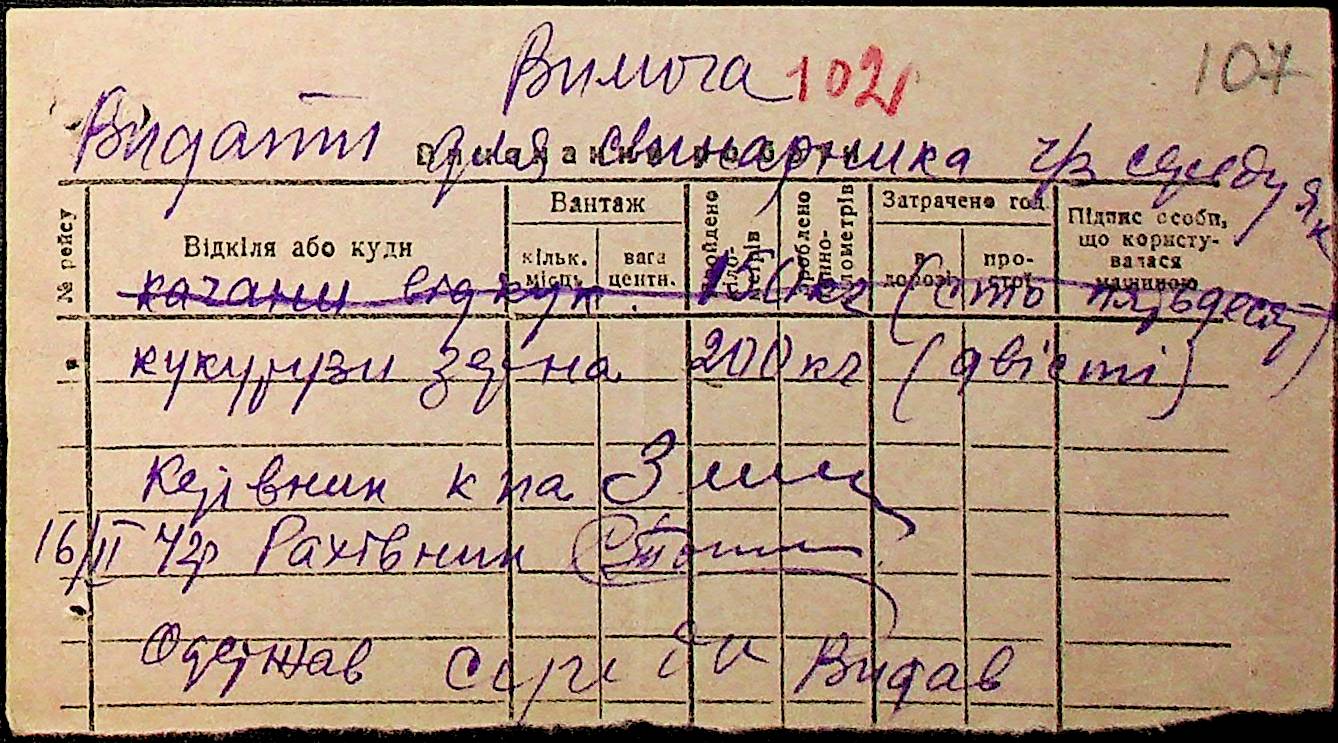 Вимога 102 107
Видати для свинарника ч/з середу Як
Виконання роботи
№ рейсу
Відкіля або куди
Вантаж
кільк. місць
вага центн.
Пройдено кіло-метрів
Зроблено тинно-кілометрів
Затрачено год.
в дорозі
про-стої
Підпис особи,
що користу-
валася
машиною
качани від кук. 150 кг (сто пятьдесят)
кукурузи зерна 200 кг (двісті)
Керівник к па
16/II 42р Рахівник
Одержав Видав